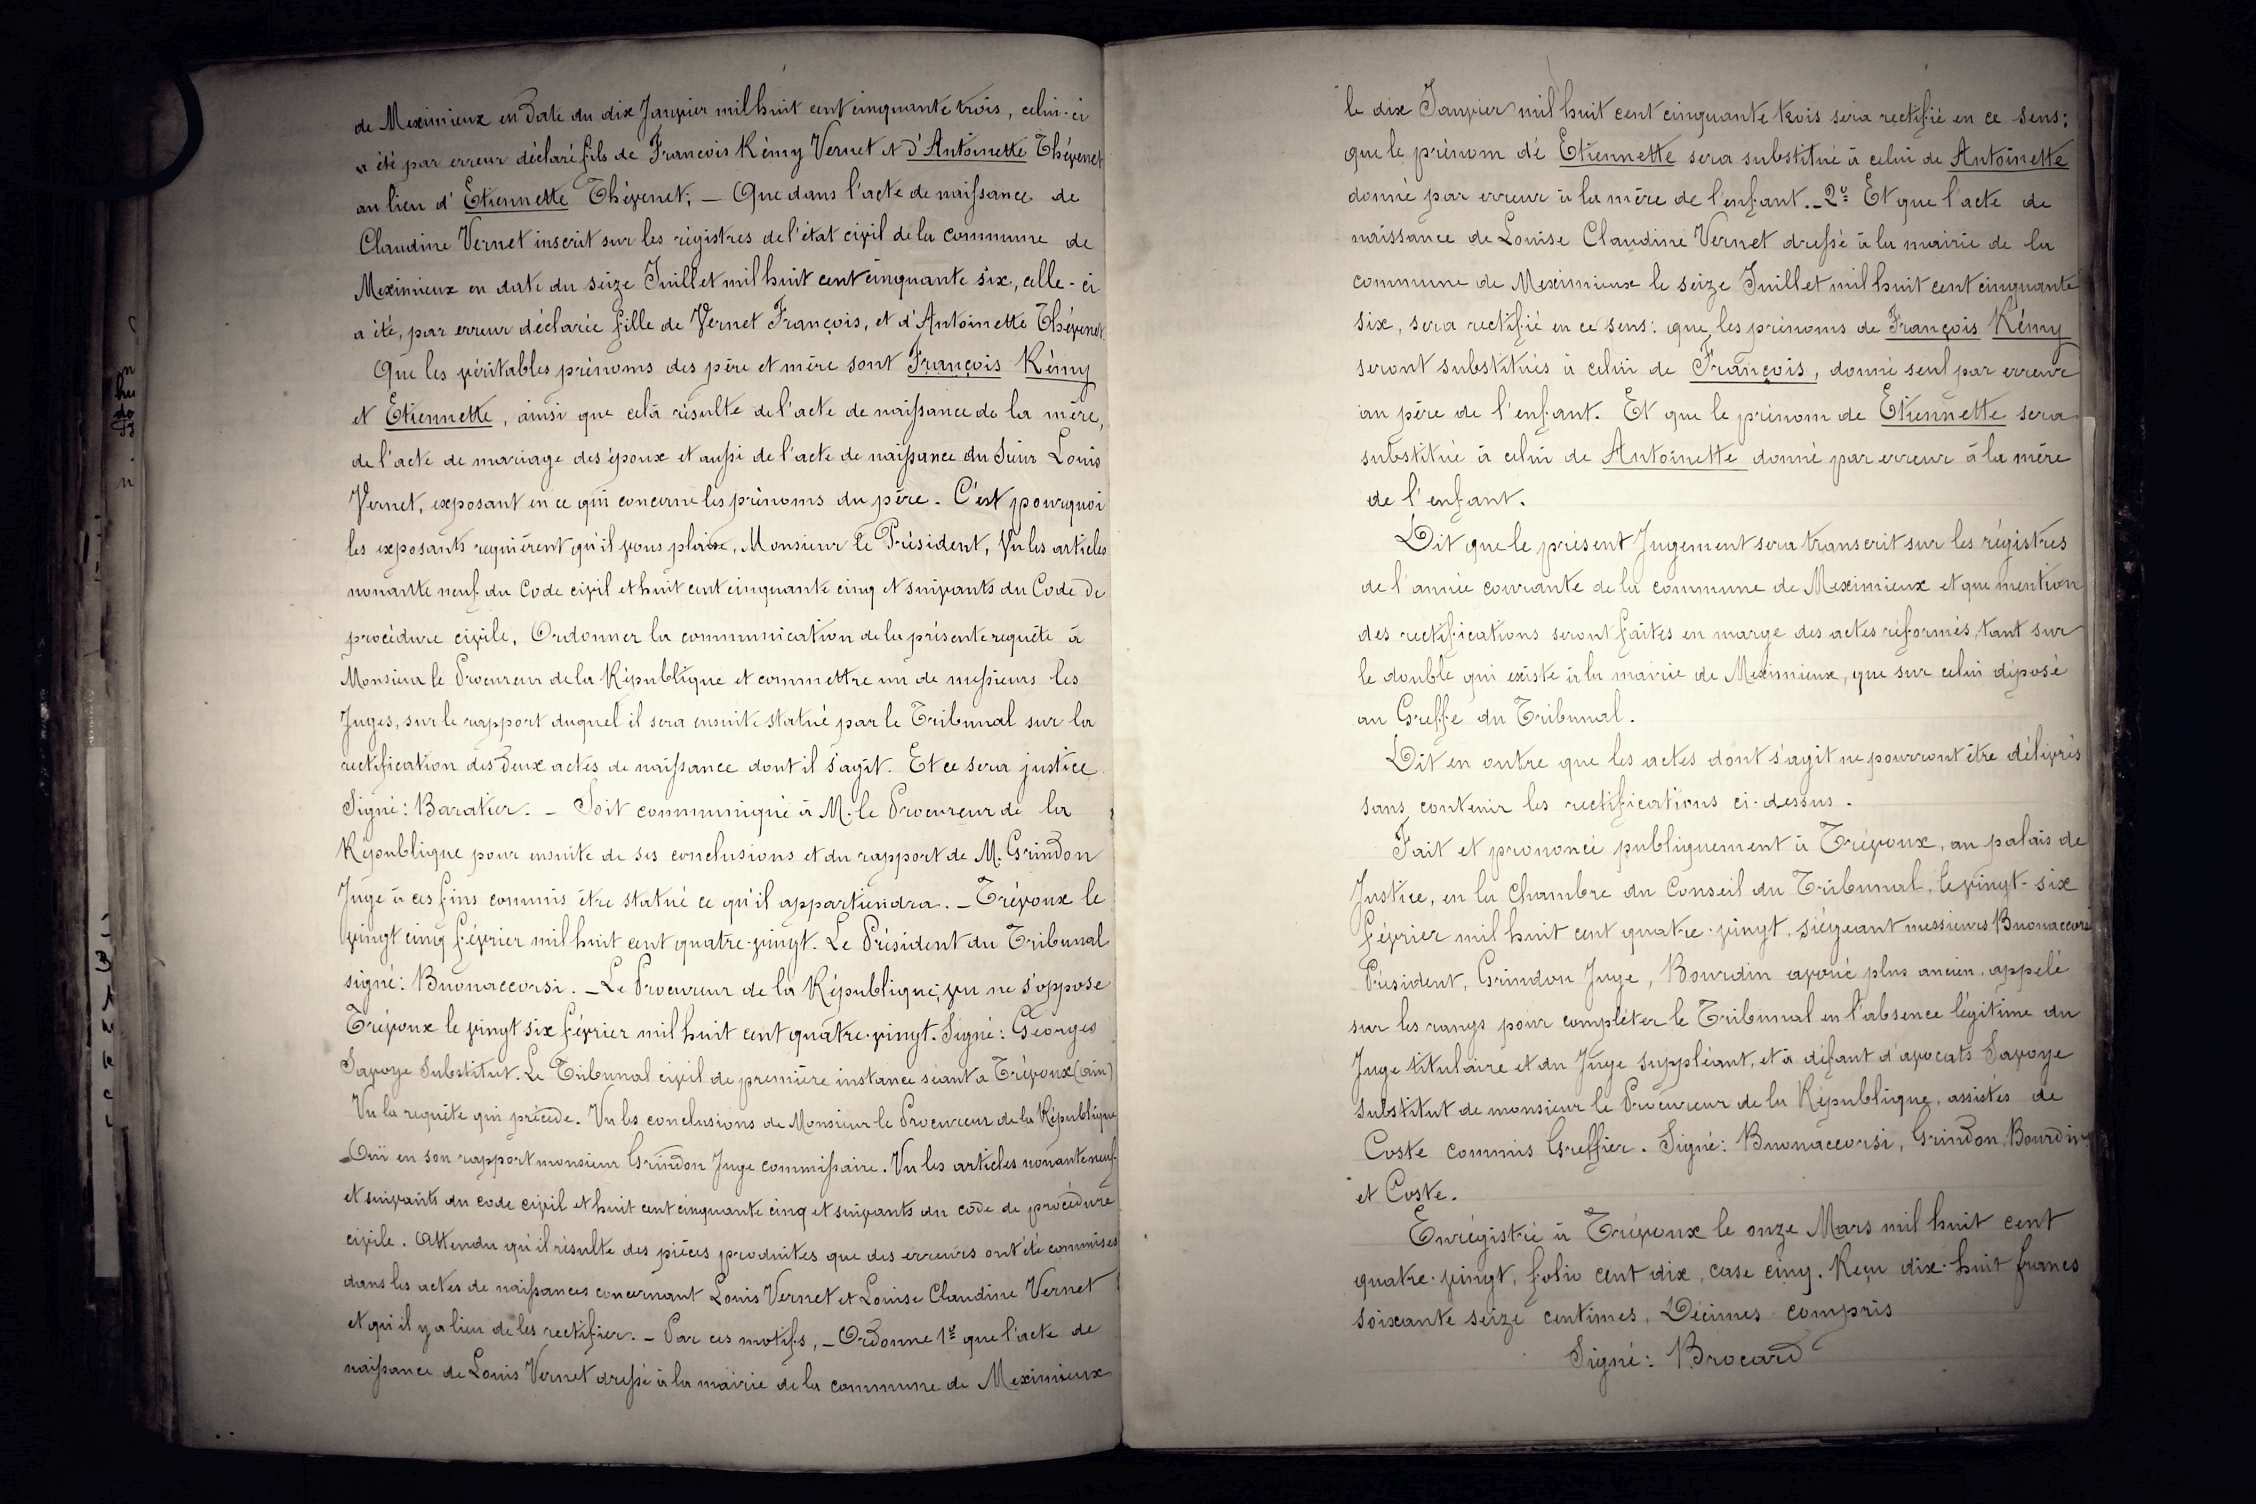 de Meximieux en date du dix Janvier mil huit cent cinquante trois, celui-ci
a été par erreur déclaré fils de Francois Rémy Vernet et d'Antoinette Thévenet
au lieu d'Etiennette Thévenet; — Que dans l'acte de naissance de
Claudine Vernet inscrit sur les régistres de l'état civil de la commune de
Meximieux en date du seize Juillet mil huit cent cinquante six, celle-ci
a été, par erreur déclarée fille de Vernet François, et d'Antoinette Thévenet
Que les véritables prénoms des père et mère sont François Rémy
et Etiennette, ainsi que celà résulte de l'acte de naissance de la mère,
de l'acte de mariage des époux et aussi de l'acte de naissance du Sieur Louis
Vernet, exposant en ce qui concerne les prénoms du père. C'est pourquoi
les exposants requièrent qu'il vous plaise, Monsieur le Président, Vu les articles
nonante neuf du Code civil et huit cent cinquante cinq et suivants du Code de
procédure civile, Ordonner la communication de la présente requête à
Monsieur le Procureur de la République et commettre un de messieurs les
Juges, sur le rapport duquel il sera ensuite statué par le Tribunal sur la
rectification des deux actes de naissance dont il s'agit. Et ce sera justice
Signé: Baratier. — Soit communiqué à M. le Procureur de la
République pour ensuite de ses conclusions et du rapport de M. Grindon
Juge à ces fins commis être statué ce qu'il appartiendra. — Trévoux le
vingt cinq février mil huit cent quatre-vingt. Le Président du Tribunal
signé: Buonaccorsi. — Le Procureur de la République; vu ne s'oppose
Trévoux le vingt six février mil huit cent quatre-vingt. Signé: Georges
Savoye Substitut. Le Tribunal civil de première instance séant à Trévoux (ain)
Vu la requête qui précède. Vu les conclusions de Monsieur le Procureur de la République
Ouï en son rapport monsieur Grindon Juge commissaire. Vu les articles nonante neuf
et suivants du code civil et huit cent cinquante cinq et suivants du code de procédure
civile. Attendu qu'il résulte des pièces produites que des erreurs ont été commises
dans les actes de naissances concernant Louis Vernet et Louise Claudine Vernet
et qu'il y a lieu de les rectifier. — Par ces motifs, — Ordonne 1º que l'acte de
naissance de Louis Vernet dressé à la mairie de la commune de Meximieux
le dix Janvier mil huit cent cinquante trois sera rectifié en ce sens:
que le prénom dé Etiennette sera substitué à celui de Antoinette
donné par erreur à la mère de l'enfant. — 2º Et que l'acte de
naissance de Louise Claudine Vernet dressé à la mairie de la
commune de Meximieux le seize Juillet mil huit cent cinquante
six, sera rectifié en ce sens: que les prénoms de François Rémy
seront substitués à celui de François, donné seul par erreur
au père de l'enfant. Et que le prénom de Etiennette sera
substitué à celui de Antoinette donné par erreur à la mère
de l'enfant.
Dit que le présent Jugement sera transcrit sur les régistres
de l'année courante de la commune de Meximieux et que mention
des rectifications seront faites en marge des actes réformés, tant sur
le double qui existe à la mairie de Meximieux, que sur celui déposé
au Greffe du Tribunal.
Dit en outre que les actes dont s'agit ne pourront être délivrés
sans contenir les rectifications ci-dessus.
Fait et prononcé publiquement à Trévoux, au palais de
Justice, en la Chambre du Conseil du Tribunal, le vingt-six
février mil huit cent quatre-vingt, siégeant messieurs Buonaccorsi
Président, Grindon Juge, Bourdin avoué plus ancien, appelé
sur les rangs pour compléter le Tribunal en l'absence légitime du
Juge titulaire et du Juge suppléant, et à défaut d'avocats Savoye
substitut de monsieur le Procureur de la République, assistés de
Coste commis Greffier. Signé: Buonaccorsi, Grindon, Bourdin
et Coste.
Enrégistré à Trévoux le onze Mars mil huit cent
quatre-vingt, folio cent dix, case cinq. Reçu dix-huit francs
soixante seize centimes, Décimes compris
Signé: Brocard